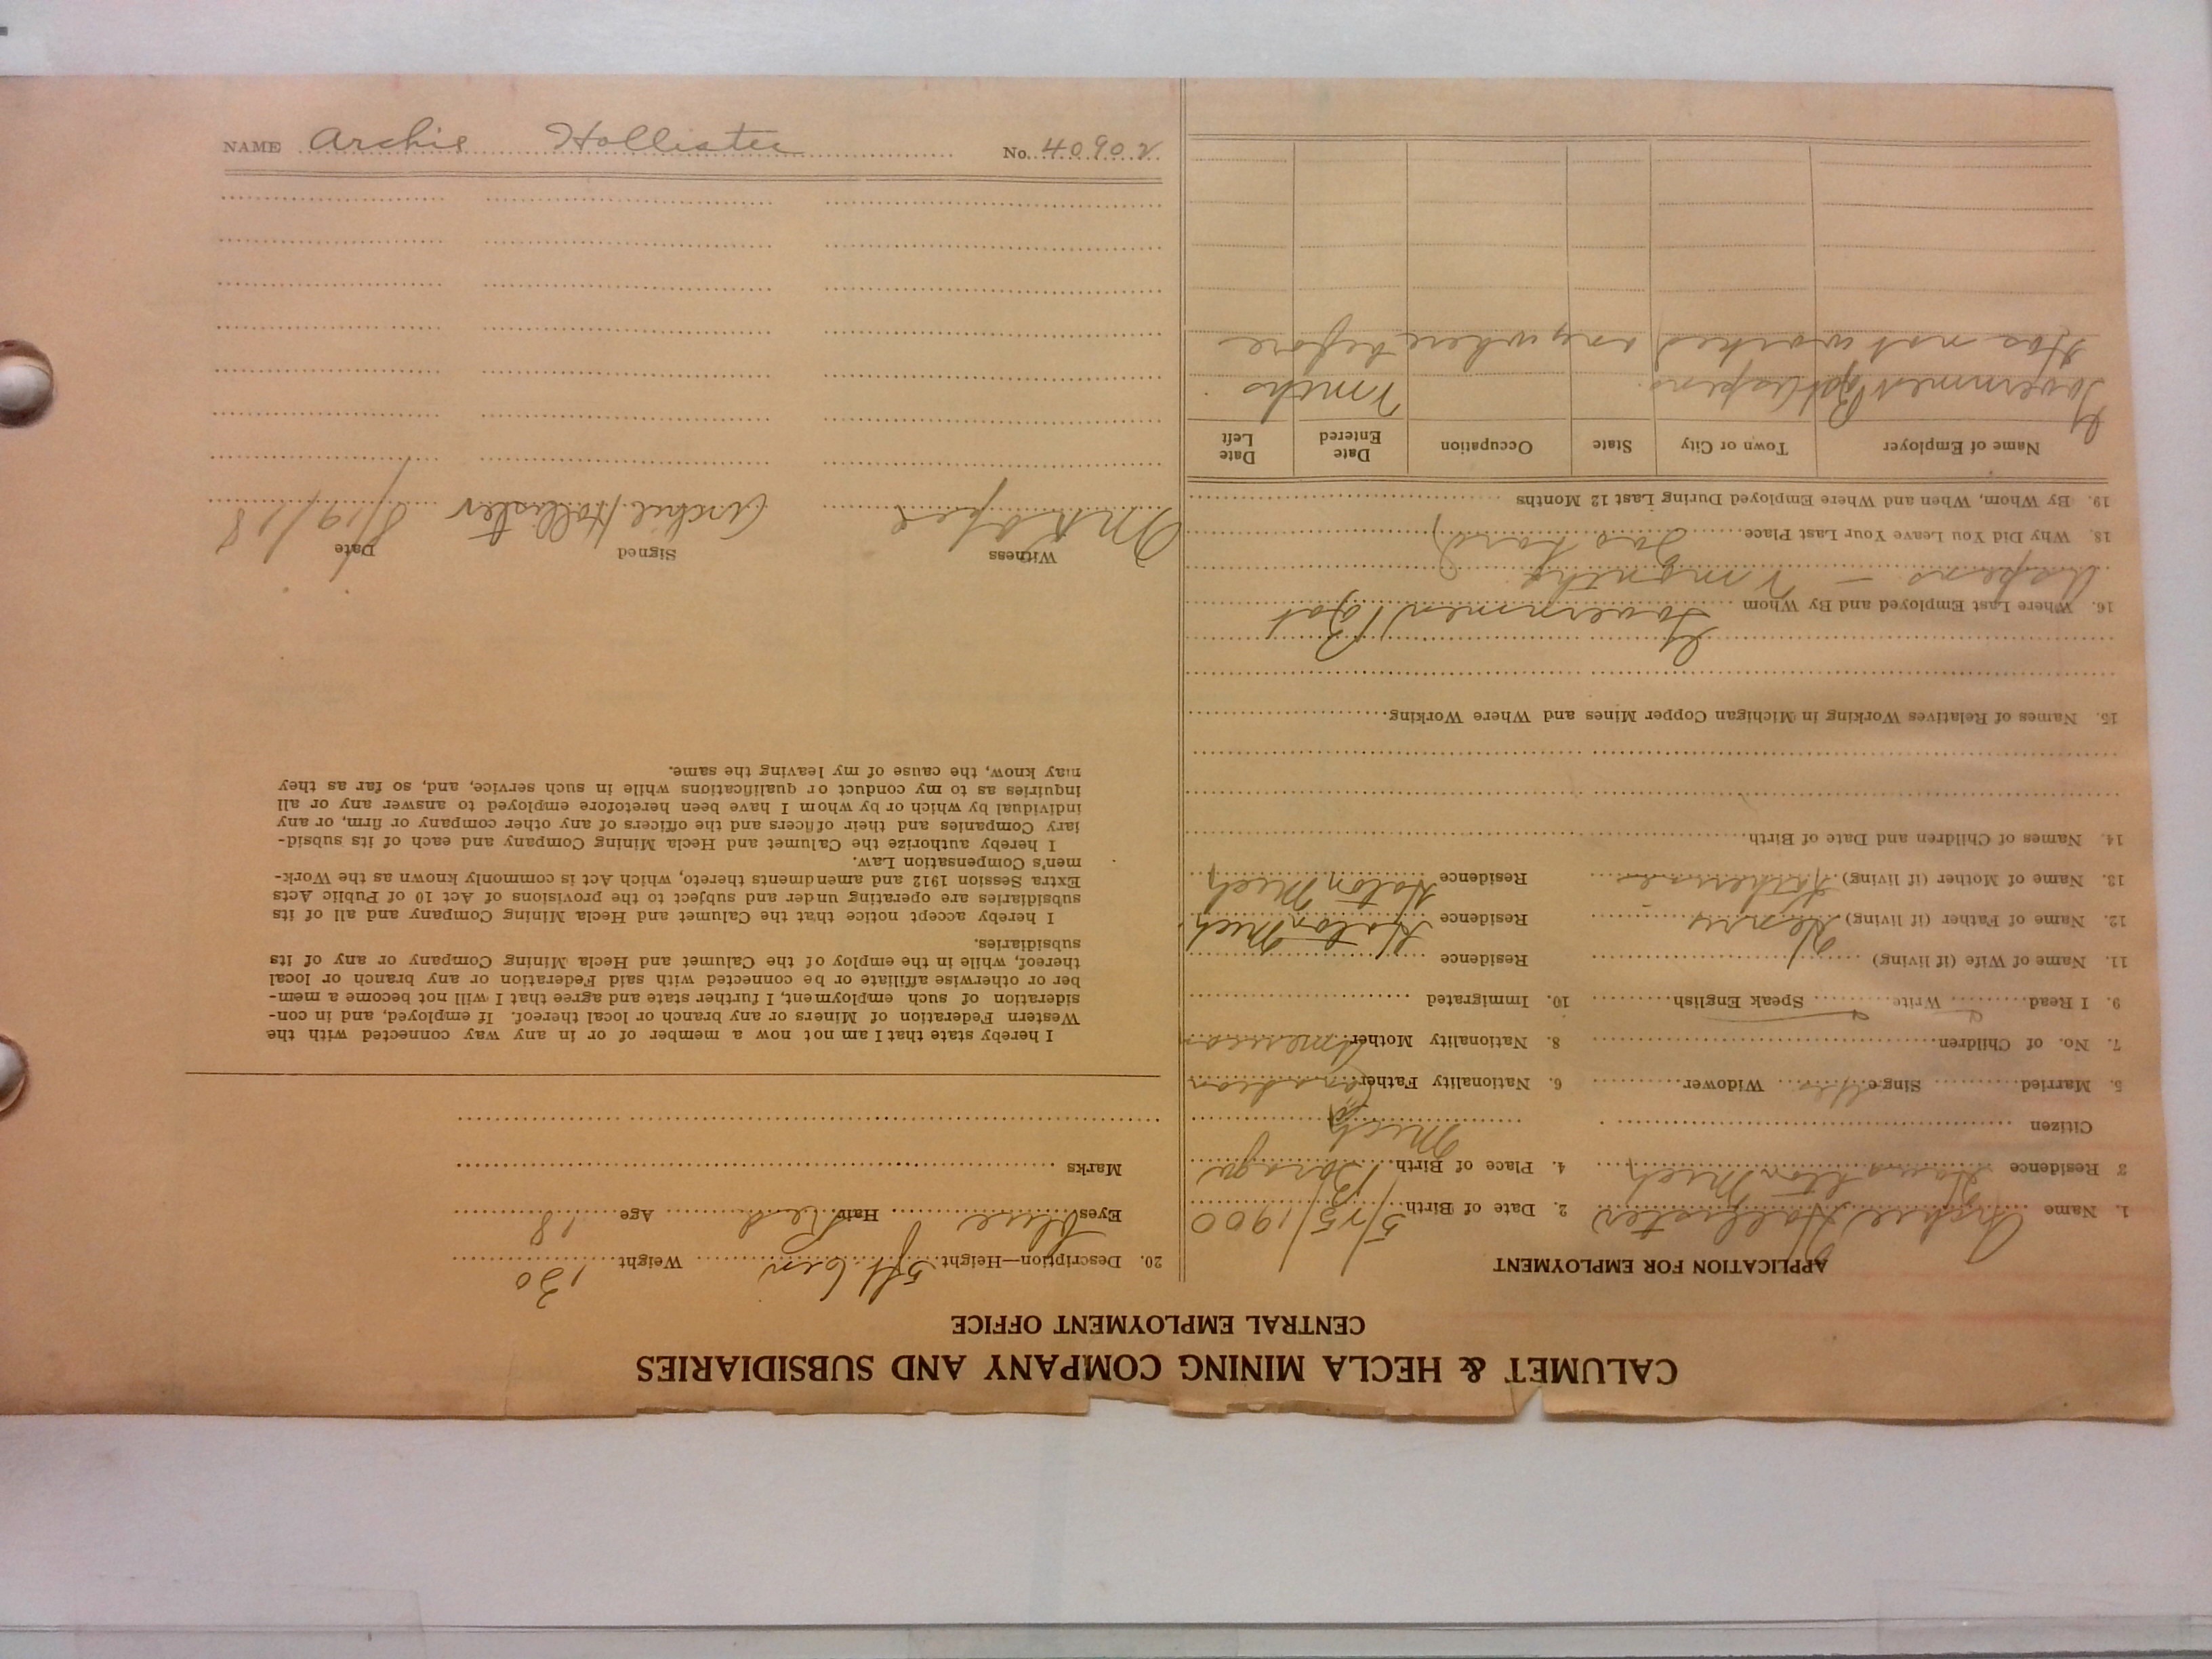 CALUMET & HECLA MINING COMPANY AND SUBSIDIARIES
CENTRAL EMPLOYMENT OFFICE
APPLICATION FOR EMPLOYMENT
1. Name Archie Hollister 2. Date of Birth 5/15/1900
3 Residence Houghton Mich 4. Place of Birth Baraga
Mich
Citizen
5. Married Single Yes Widower 6. Nationality Father Canadian
7. No. of Children 8. Nationality Mother American
9. I Read Write Speak English 10. Immigrated
11. Name of Wife (if living) Residence
12. Name of Father (if living) Henry Residence Hoton Mich
13. Name of Mother (if living) Residence Hoton Mich
14. Names of Children and Date of Birth
15. Names of Relatives Working in Michigan Copper Mines and Where Working
16. Where Last Employed and By Whom Government Boat
7 months
18. Why Did You Leave Your Last Place Too hard
19. By Whom, When and Where Employed During Last 12 Months
Name of Employer Town or City State Occupation Date Entered Date Left
Government Boat 7 months
Has not worked anywhere before
20. Description—Height 5 ft. 6 in Weight 120
Eyes Blue Hair Red Age 18
Marks
I hereby state that I am not now a member of or in any way connected with the
Western Federation of Miners or any branch or local thereof. If employed, and in con-
sideration of such employment, I further state and agree that I will not become a mem-
ber or otherwise affiliate or be connected with said Federation or any branch or local
thereof, while in the employ of the Calumet and Hecla Mining Company or any of its
subsidiaries.
I hereby accept notice that the Calumet and Hecla Mining Company and all of its
subsidiaries are operating under and subject to the provisions of Act 10 of Public Acts
Extra Session 1912 and amendments thereto, which Act is commonly known as the Work-
men's Compensation Law.
I hereby authorize the Calumet and Hecla Mining Company and each of its subsid-
iary Companies and their officers and the officers of any other company or firm, or any
individual by which or by whom I have been heretofore employed to answer any or all
inquiries as to my conduct or qualifications while in such service, and, so far as they
may know, the cause of my leaving the same.
Witness Signed Date
Archie Hollister 8/19/18
NAME Archie Hollister No. 40902